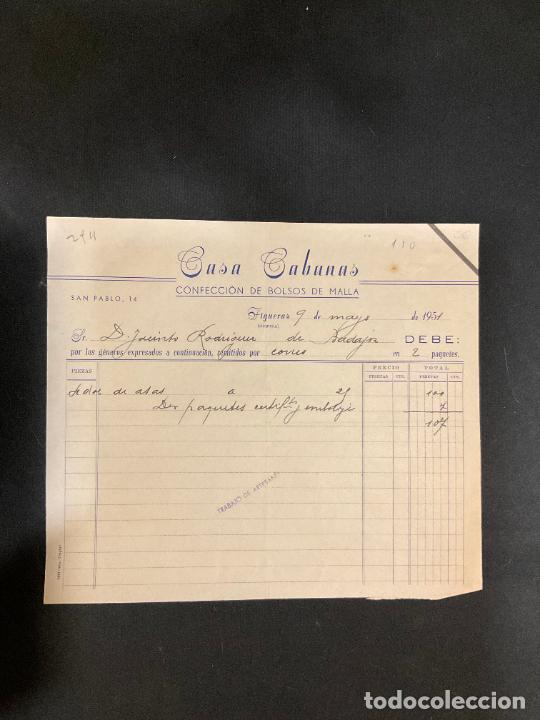 294
110
Casa Cabanas
CONFECCIÓN DE BOLSOS DE MALLA
SAN PABLO, 14
Figueras 9 de mayo de 1951
(GERONA)
Sr. D. Jacinto Rodriguez de Badajoz DEBE:
por los géneros expresados a continuación, remitidos por correo en 2 paquetes.
PIEZAS PRECIO TOTAL
PESETAS CTS. PESETAS CTS.
de asas a 25 100
Dos paquetes certif. y embalaje 7
107
TRABAJO DE ARTESANÍA
todocoleccion.net